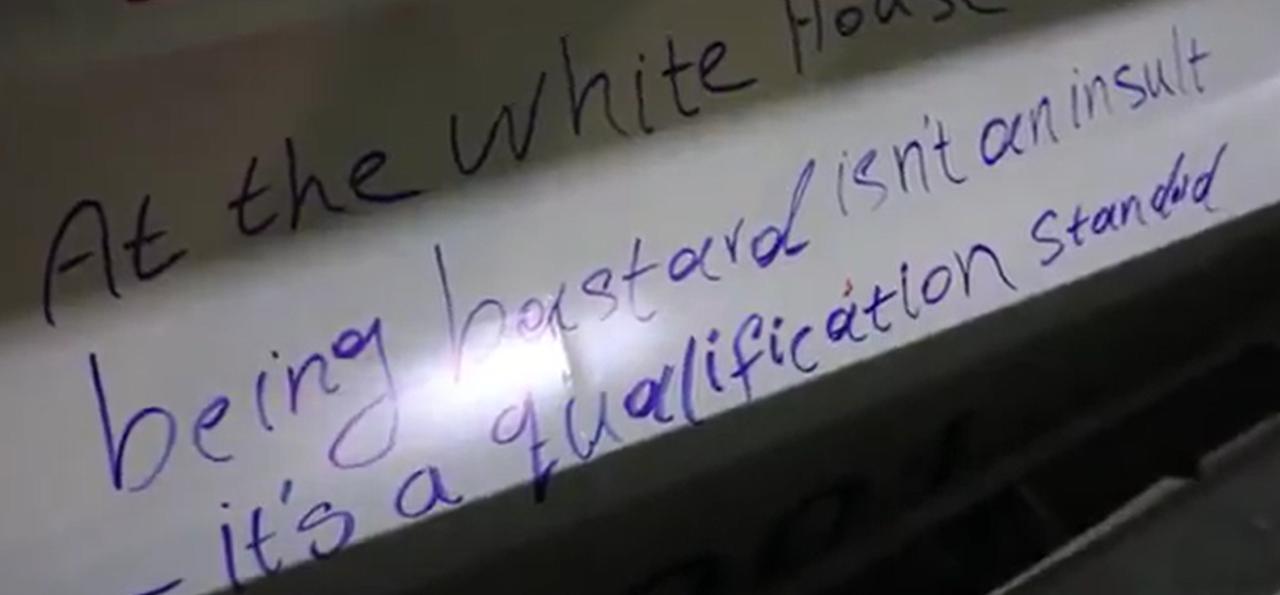 At the White House
being bastard isn't an insult
- it's a qualification standard